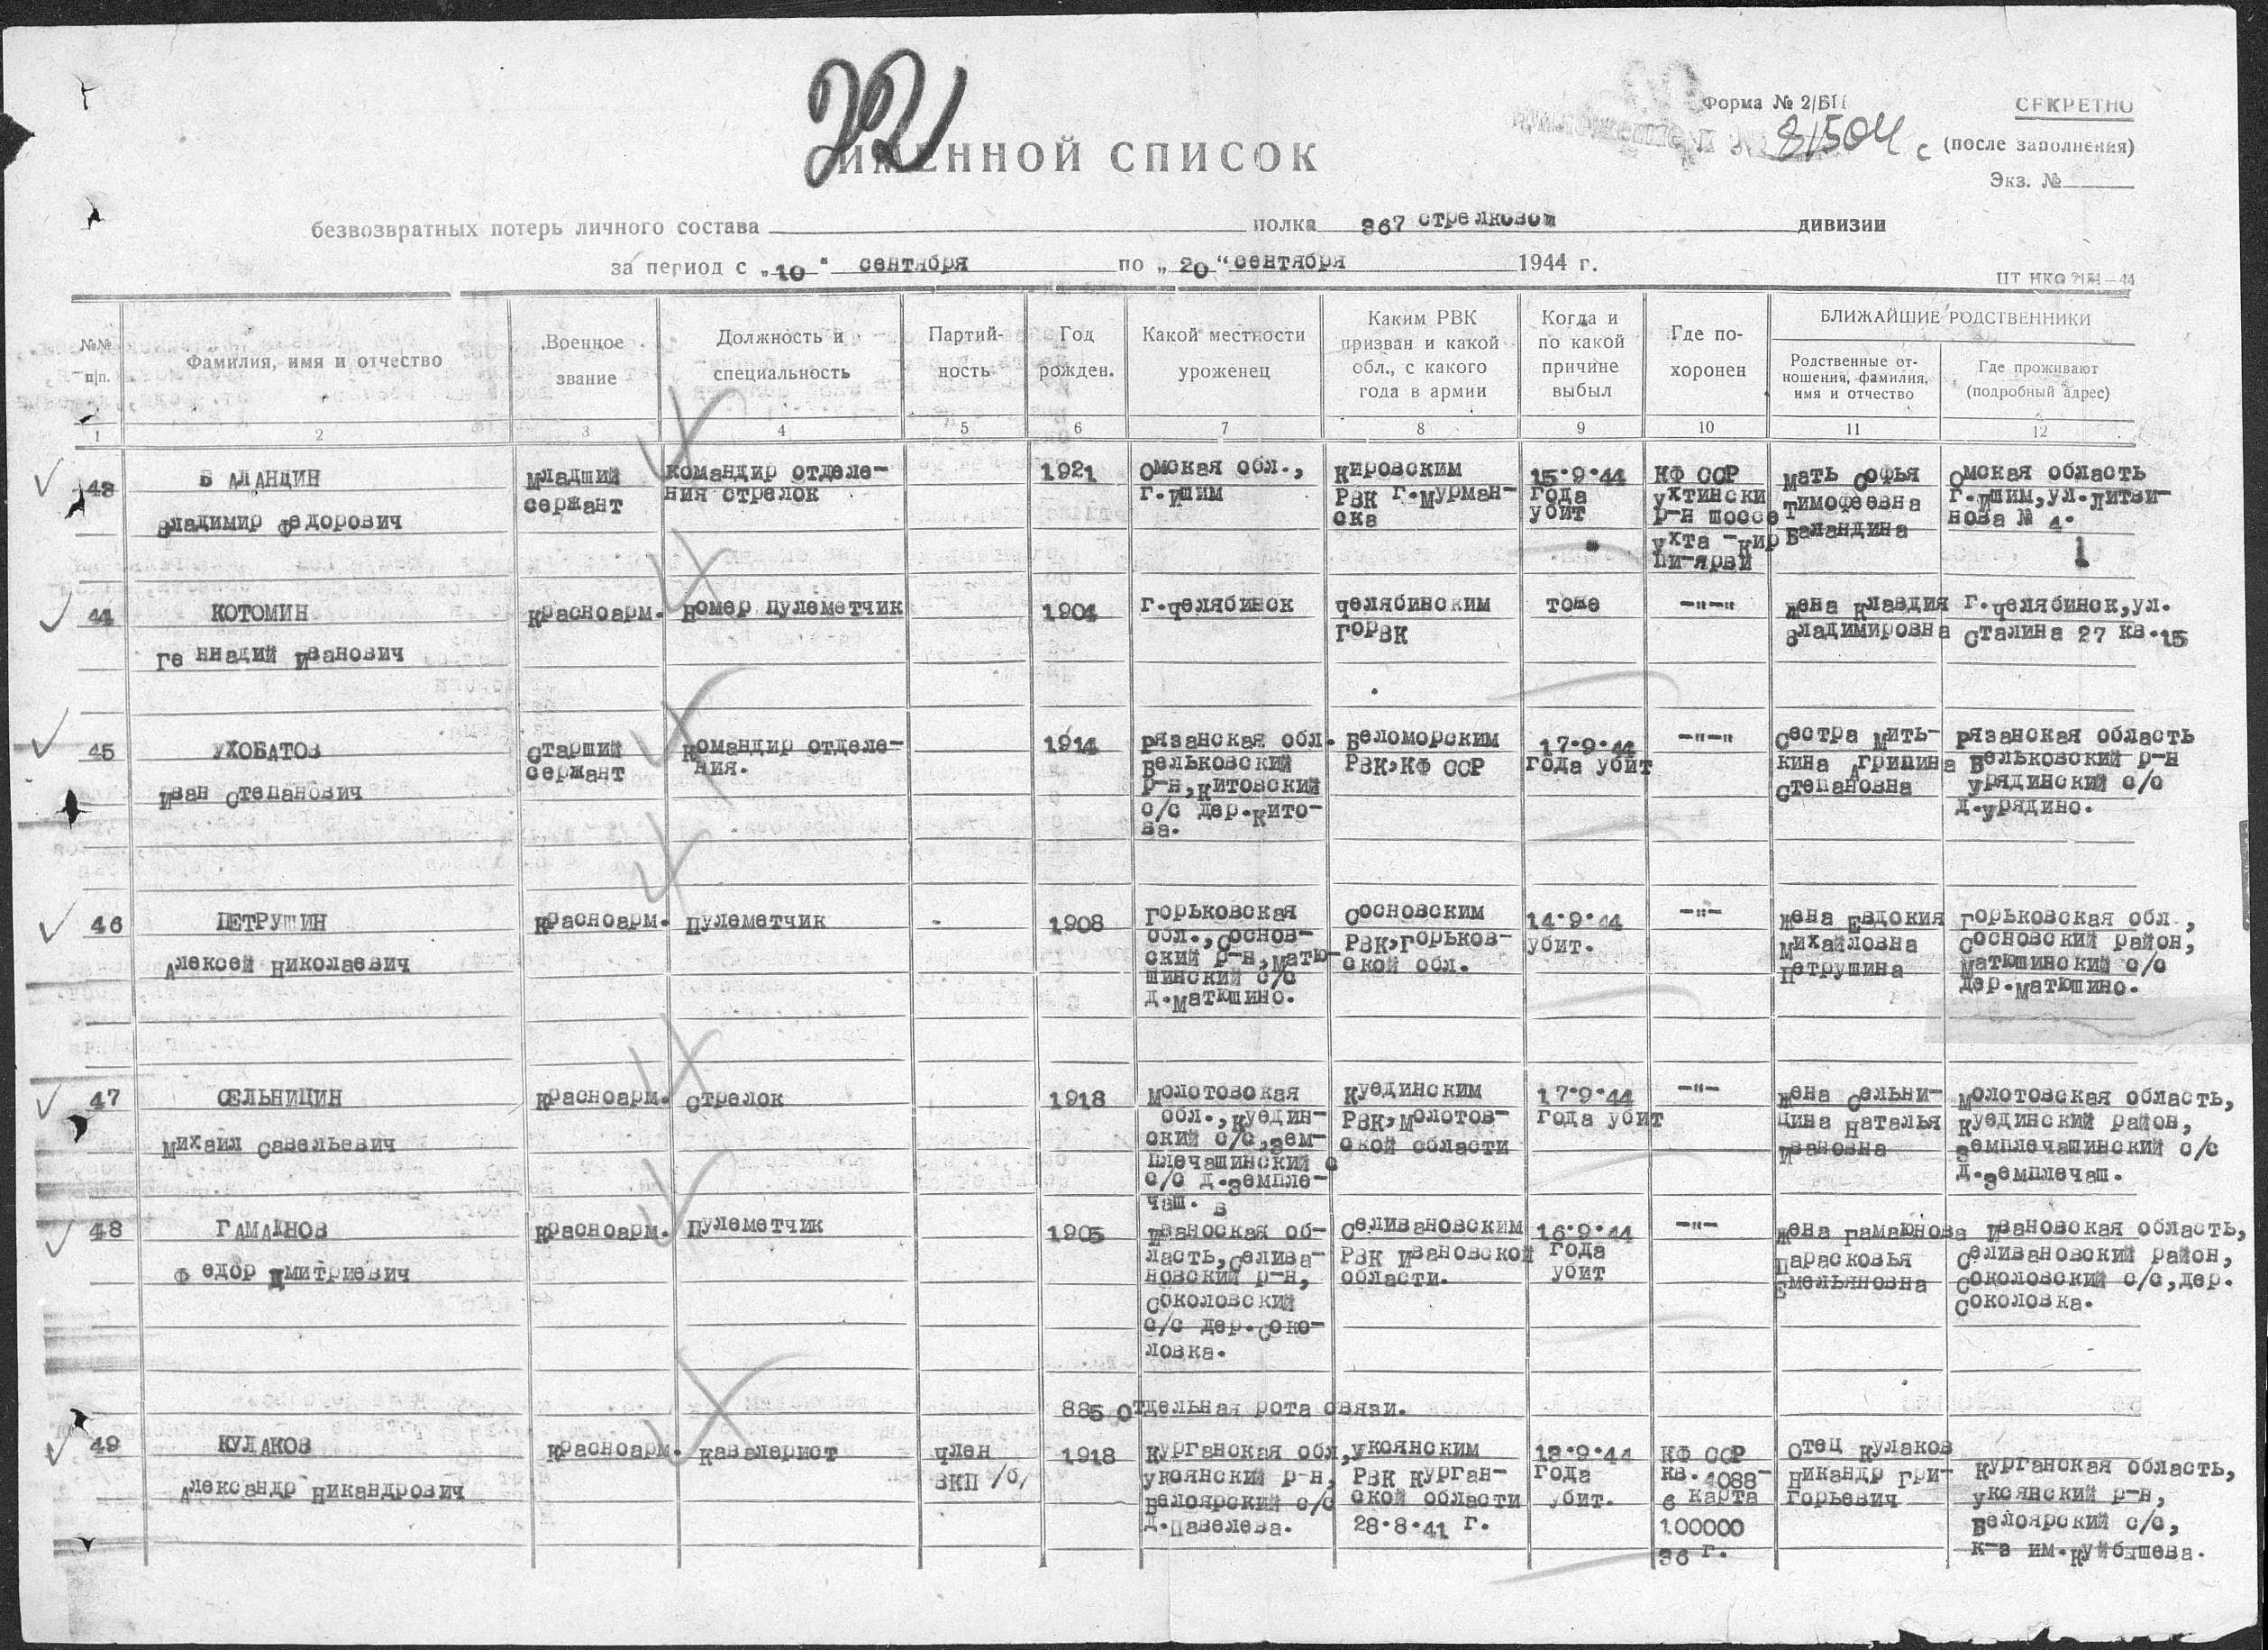 221
Форма № 2/БП
СЕКРЕТНО
81504 с
(после заполнения)
Экз. №
ИМЕННОЙ СПИСОК
безвозвратных потерь личного состава полка 367 стрелковой дивизии
за период с „10“ сентября по „20“ сентября 1944 г.
№№ п/п.
Фамилия, имя и отчество
Военное звание
Должность и специальность
Партий-
ность
Год рожден.
Какой местности уроженец
Каким РВК
призван и какой
обл., с какого
года в армии
Когда и
по какой
причине
выбыл
Где по-
хоронен
БЛИЖАЙШИЕ РОДСТВЕННИКИ
Родственные от-
ношения, фамилия,
имя и отчество
Где проживают
(подробный адрес)
1 2 3 4 5 6 7 8 9 10 11 12
43
БАЛАНДИН
Владимир Федорович
Младший
сержант
Командир отделе-
ния стрелок
1921
Омская обл.,
г.Ишим
Кировским
РВК г.Мурман-
ска
15.9.44
года
убит
КФ ССР
Ухтински
р-н шоссе
Ухта -Кир
пи-ярви
Мать Софья
Тимофеевна
Баландина
Омская область
г.Ишим,ул.Литви-
нова № 4.
1
44
КОТОМИН
Геннадий Иванович
Красноарм.
Номер пулеметчик
1904
г.Челябинск
Челябинским
ГорВК
тоже
-"-"
Жена Клавдия
Владимировна
г.Челябинск,ул.
Сталина 27 кв.15
45
УХОБАТОВ
Иван Степанович
Старший
сержант
Командир отделе-
ния.
1914
Рязанская обл.
Бельковский
р-н,Китовский
с/с дер.Кито-
ва.
Беломорским
РВК,КФ ССР
17.9.44
года убит
-"-"
Сестра Мить-
кина Агрипина
Степановна
Рязанская область
Бельковский р-н
Урядинский с/с
д.Урядино.
46
ПЕТРУШИН
Алексей Николаевич
Красноарм.
Пулеметчик
-
1908
Горьковская
обл.,Соснов-
ский р-н,Матю-
шинский с/с
д.Матюшино.
Сосновским
РВК,Горьков-
ской обл.
14.9.44
убит.
-"-
Жена Евдокия
Михайловна
Петрушина
Горьковская обл.,
Сосновский район,
Матюшинский с/с
дер.Матюшино.
47
СЕЛЬНИЦИН
Михаил Савельевич
Красноарм.
Стрелок
1918
Молотовская
обл.,Куедин-
ский с/с,Зем-
плечашинский
с/с д.Земпле-
чаш.
Куединским
РВК,Молотов-
ской области
17.9.44
года убит
-"-
Жена Сельни-
цина Наталья
Ивановна
Молотовская область,
Куединский район,
Земплечашинский с/с
д.Земплечаш.
48
ГАМАЮНОВ
Федор Дмитриевич
Красноарм.
Пулеметчик
1905
в
Иваноская об-
ласть,Селива-
новский р-н,
Соколовский
с/с дер.Соко-
ловка.
Селивановским
РВК Ивановской
области.
16.9.44
года
убит
-"-
Жена Гамаюнова
Парасковья
Емельяновна
Ивановская область,
Селивановский район,
Соколовский с/с,дер.
Соколовка.
885 Отдельная рота связи.
49
КУЛАКОВ
Александр Никандрович
Красноарм.
Кавалерист
член
ВКП /б/
1918
Курганская обл,
Уксянский р-н,
Белоярский с/с
д.Павелева.
Уксянским
РВК Курган-
ской области
28.8.41 г.
13.9.44
года
убит.
КФ ССР
кв.4088-
6 карта
100000
36 г.
Отец Кулаков
Никандр Гри-
горьевич
Курганская область,
Уксянский р-н,
Белоярский с/с,
к-з им.Куйбышева.